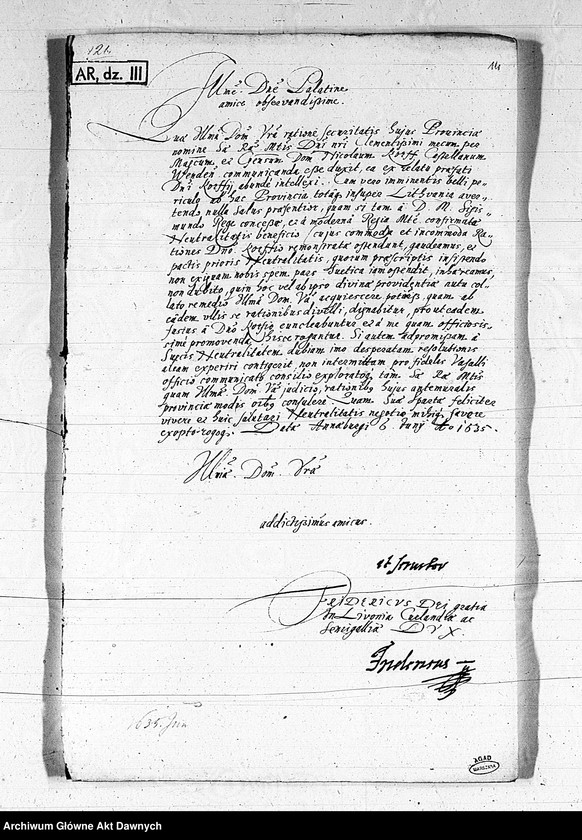 126
AR, dz. III
111
Illme. Dne Palatine
amice observandissime.
Quae Illma Dom Vra ratione securitatis hujus Provinciae
nomine Sae Rae Mtis Dni nri Clementissimi mecum per
Magcum, et Gensum Dom Nicolaum Korff Castellanum
Wenden communicanda esse duxit, ea ex relato praefati
Dni Korffij abonde intellexi. Cum vero imminentis belli pe-
riculo ab hac Provincia totaq, insuper Lithvania aver-
tendo nulla salus praesentior, quam si tam à D. M. Sigis-
mundo Rege concessae, et à moderna Regia Mte confirmatae
Neutralitatis beneficio, cujus commoda et incommoda Ra-
tiones Dno. Korffio remonstratae ostendant, gaudeamus, et
pactis prioris Neutralitatis, quorum praescriptis insistendo
non exiguam nobis spem, pars Suetica iam ostendit, inhaereamus,
non dubito, quin hoc vel ab ipso divinae providentiae nutu col-
lato remedio Illma Dom. Va acquiescere potius, quam ab
eadem ullis se rationibus divelli, dignabitur, prout eadem
fusius à Dno Korffio enucleabuntur et à me quam officiosis-
sime promovenda hisce rogantur. Si autem ad promissam à
Suecis Neutralitatem dubiam imo desperatam resolutionis
aleam experiri contigerit, non intermittam pro fidelis Vasalli
officio communicato consilio exploratoq, tam Sae Rae Mtis
quam Illmae Dom. Vae judicio, rationibq hujus antemuralis
provinciae modis oibq consulere. Quam
vivere et
exopto rogoq. Data Annaburgi 6 Junij Ao 1635.
Illmae. Dom. Vrae
addictissimus amicus.
FRIDERICVS DEI gratia
In Livonia Curlandiae ac
Semigalliae DVX.
Fridericus
1635. Jun
AGAD
WARSZAWA
Archiwum Główne Akt Dawnych